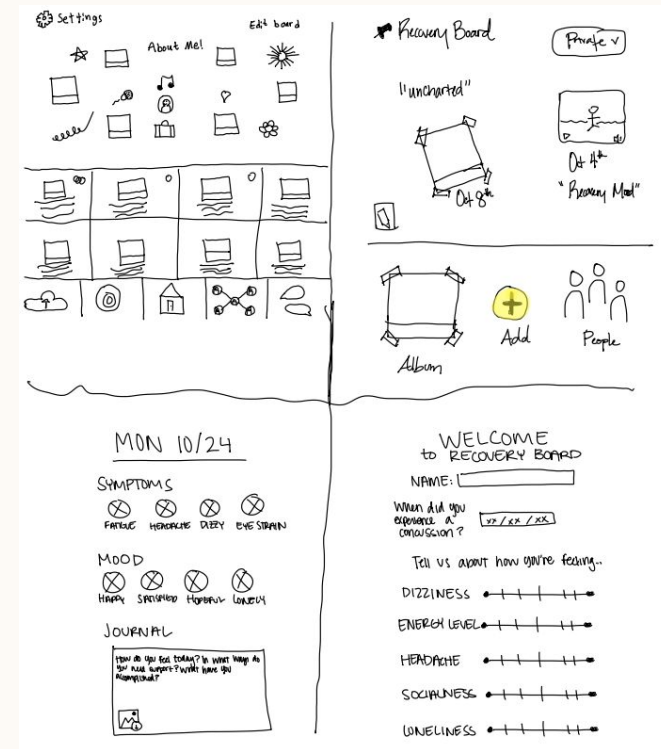 Settings
Edit board
About Me!
Recovery Board
Private v
"uncharted"
Oct 8th
Oct 4th
"Recovery Mood"
Album
Add
People
MON 10/24
SYMPTOMS
FATIGUE HEADACHE DIZZY EYE STRAIN
MOOD
HAPPY SATISFIED HOPEFUL LONELY
JOURNAL
How do you feel today? In what ways do
you need support? What have you
accomplished?
WELCOME
to RECOVERY BOARD
NAME:
When did you
experience a
concussion?
xx / xx / xx
Tell us about how you're feeling..
DIZZINESS
ENERGY LEVEL
HEADACHE
SOCIALNESS
LONELINESS